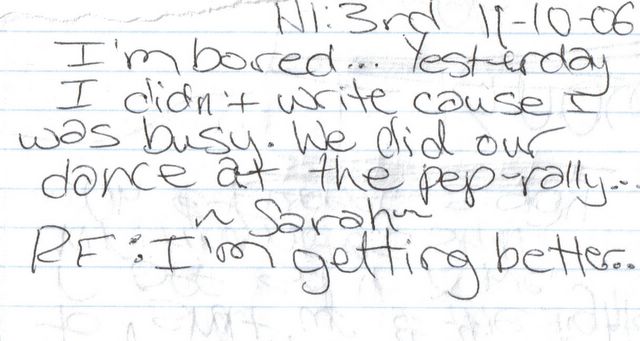 N1:3rd 11-10-06
I'm bored... Yesterday
I didn't write cause I
was busy. We did our
dance at the pep-rally...
~ Sarah ~
RF: I'm getting better...